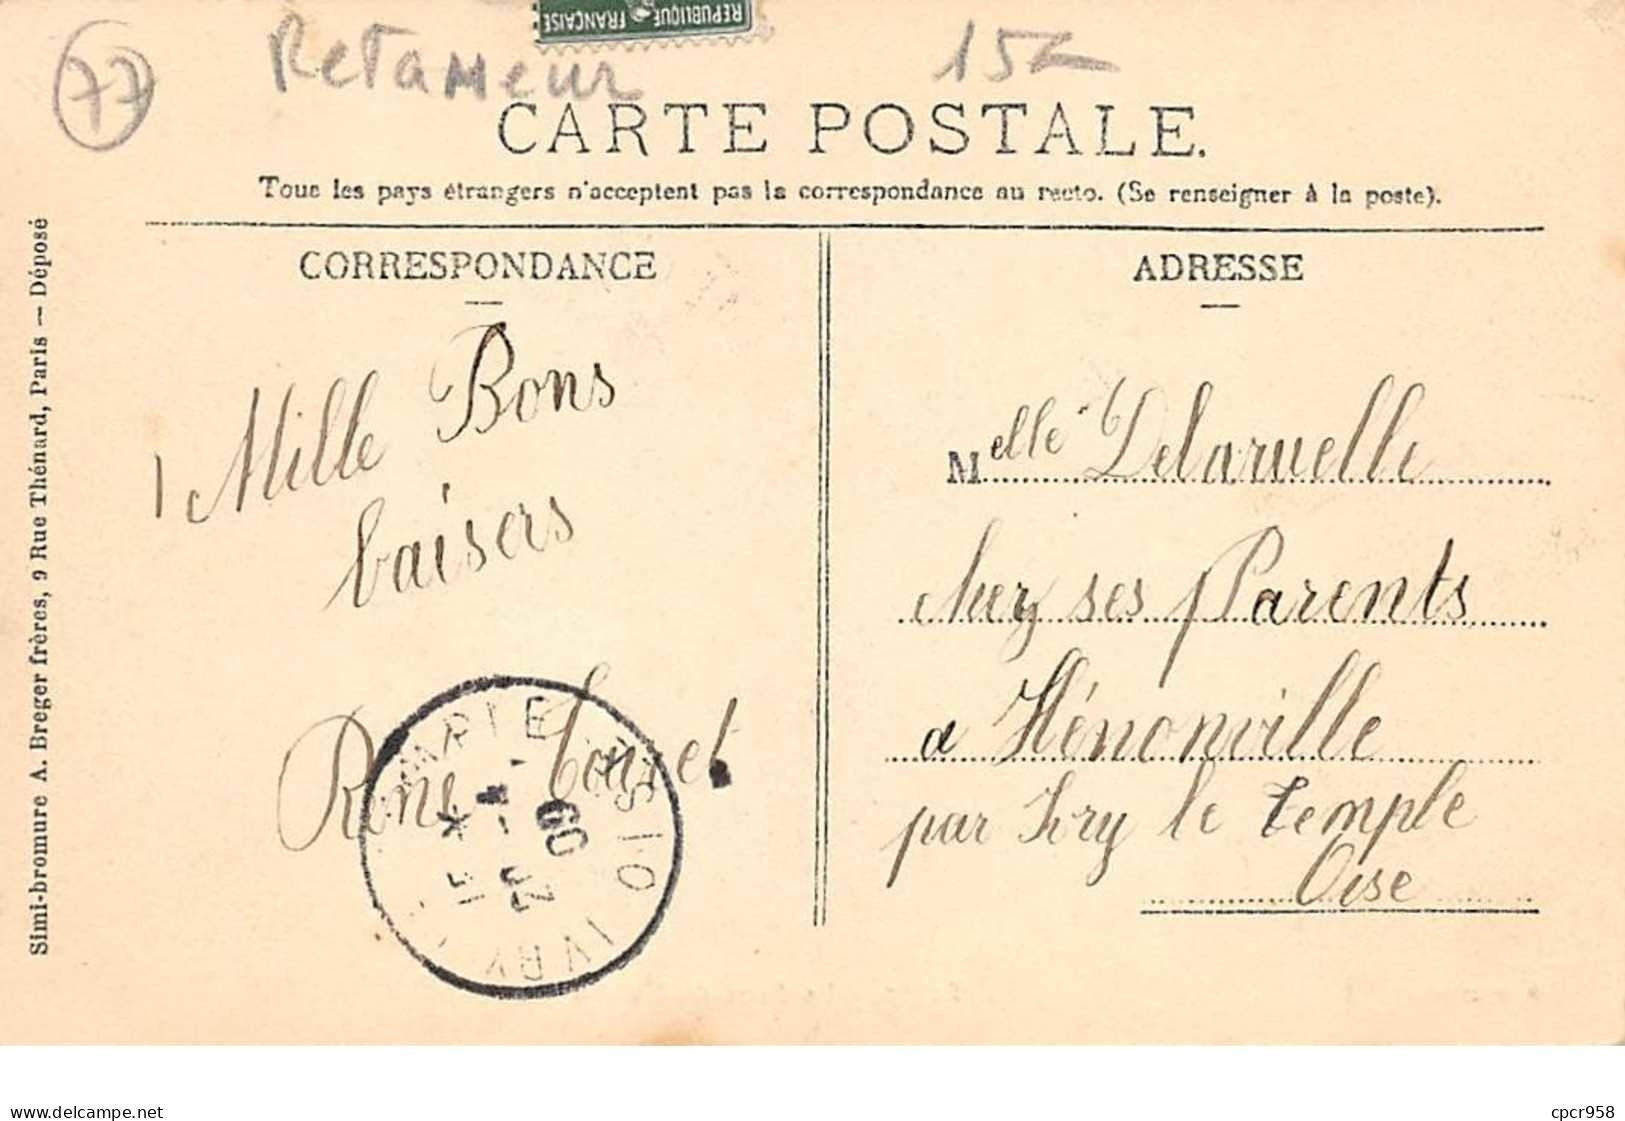 RÉPUBLIQUE FRANÇAISE
77
Retameur
15
CARTE POSTALE.
Tous les pays étrangers n'acceptent pas la correspondance au recto. (Se renseigner à la poste).
Simi-bromure A. Breger frères, 9 Rue Thénard, Paris — Déposé
CORRESPONDANCE
Mille Bons
baisers
René
OISE
IVRY
09
ADRESSE
Melle Delaruelle
chez ses Parents
a Hénonville
par Ivry le temple
Oise
www.delcampe.net
cpcr958